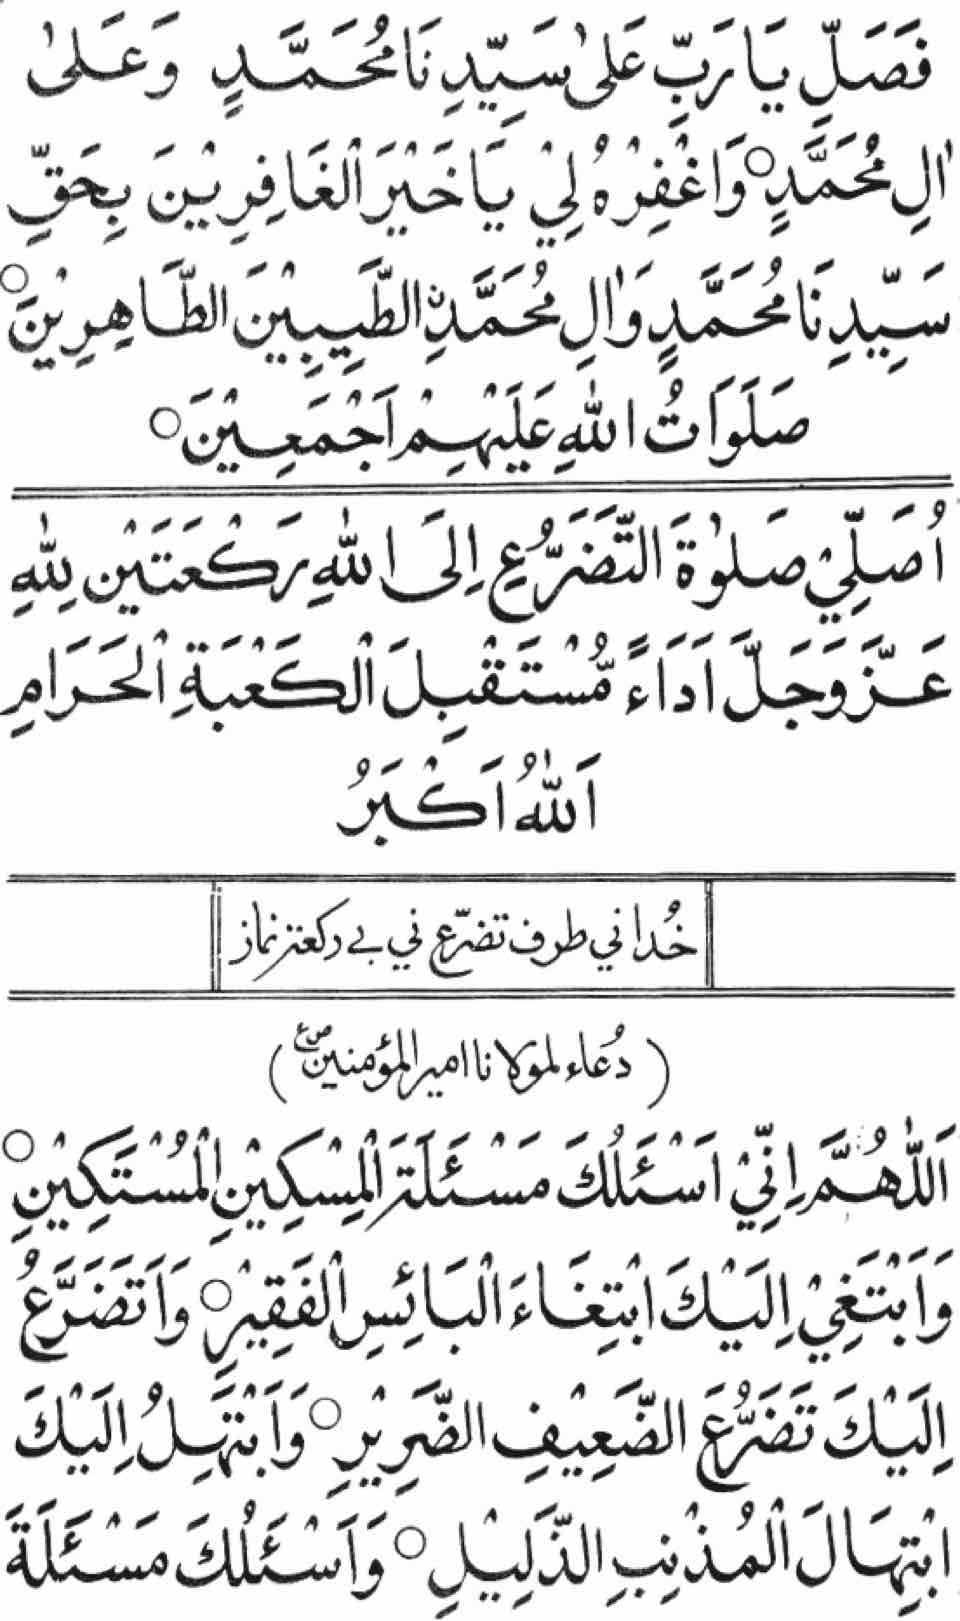 فَصَلِّ يَا رَبِّ عَلٰى سَيِّدِنَا مُحَمَّدٍ وَعَلٰى
اٰلِ مُحَمَّدٍ○ وَاغْفِرْهُ لِيْ يَا خَيْرَ الْغَافِرِيْنَ بِحَقِّ
سَيِّدِنَا مُحَمَّدٍ وَاٰلِ مُحَمَّدِنِ الطَّيِّبِيْنَ الطَّاهِرِيْنَ○
صَلَوَاتُ اللهِ عَلَيْهِمْ اَجْمَعِيْنَ○
اُصَلِّيْ صَلٰوةَ التَّضَرُّعِ اِلَى اللهِ رَكْعَتَيْنِ لِلّٰهِ
عَزَّ وَجَلَّ اَدَاءً مُّسْتَقْبِلَ الْكَعْبَةِ الْحَرَامِ
اَللهُ اَكْبَرُ
خُدا ني طرف تضرّع ني بے ركعتز نماز
(دُعاء لمولانا امير المؤمنين ص ع)
اَللّٰهُمَّ اِنِّيْ اَسْئَلُكَ مَسْئَلَةَ الْمِسْكِيْنِ الْمُسْتَكِيْنِ○
وَاَبْتَغِيْ اِلَيْكَ ابْتِغَاءَ الْبَائِسِ الْفَقِيْرِ○ وَاَتَضَرَّعُ
اِلَيْكَ تَضَرُّعَ الضَّعِيْفِ الضَّرِيْرِ○ وَاَبْتَهِلُ اِلَيْكَ
ابْتِهَالَ الْمُذْنِبِ الذَّلِيْلِ○ وَاَسْئَلُكَ مَسْئَلَةَ